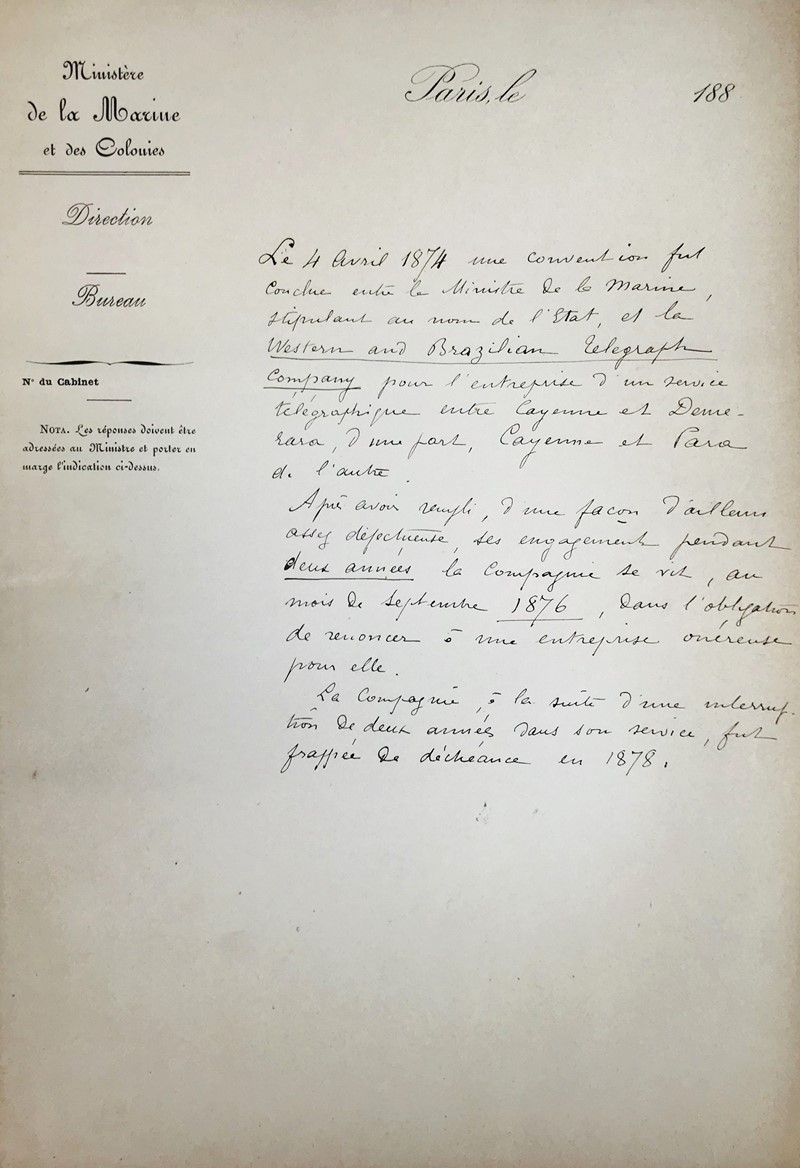 Ministère
de la Marine
et des Colonies
Direction
Bureau
N° du Cabinet
NOTA. Les réponses doivent être
adressées au Ministre et porter en
marge l'indication ci-dessus.
Paris, le 188
Le 4 Avril 1874 une convention fut
conclue entre le Ministre de la Marine,
stipulant au nom de l'Etat, et la
Western and Brazilian Telegraph
Company pour l'entreprise d'un service
télégraphique entre Cayenne et Deme-
rara, d'une part, Cayenne et Para
de l'autre.
Après avoir rempli, d'une façon d'ailleurs
assez défectueuse, ses engagements pendant
deux années la Compagnie se vit, au
mois de Septembre 1876, dans l'obligation
de renoncer à une entreprise onéreuse
pour elle.
La Compagnie, à la suite d'une interrup-
tion de deux années dans son service, fut
frappée de déchéance en 1878.